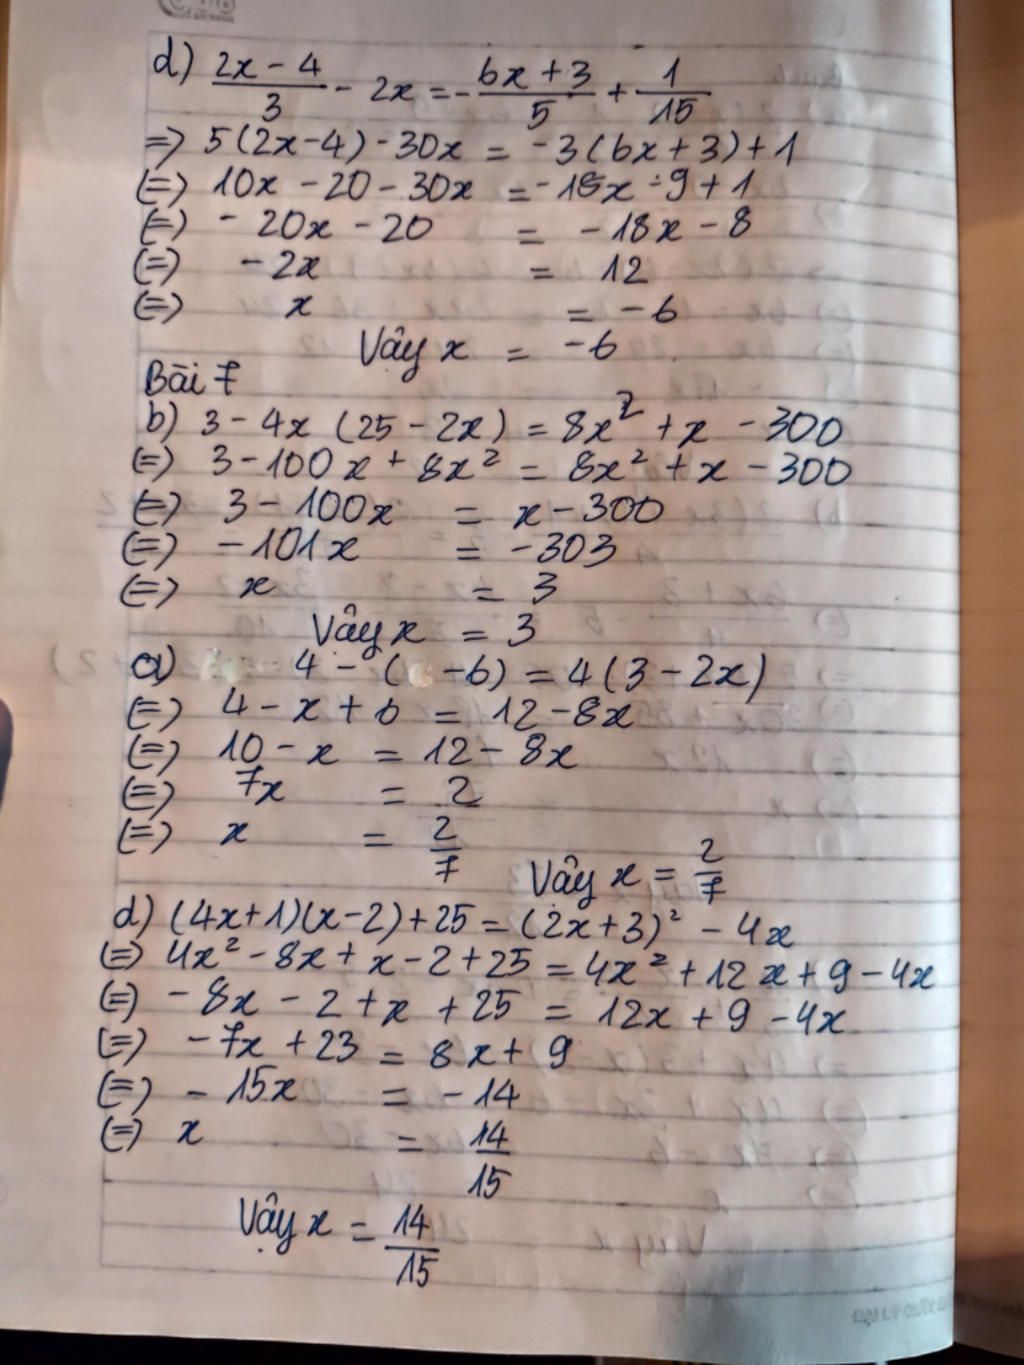 d) (2x - 4)/3 - 2x = - (6x + 3)/5 + 1/15
=> 5(2x-4) - 30x = -3(6x+3)+1
(=) 10x - 20 - 30x = -18x - 9 + 1
(=) - 20x - 20 = - 18x - 8
(=) - 2x = 12
(=) x = - 6
Vây x = -6
Bài 7
b) 3 - 4x (25 - 2x) = 8x² + x - 300
(=) 3 - 100x + 8x² = 8x² + x - 300
(=) 3 - 100x = x - 300
(=) - 101x = - 303
(=) x = 3
Vây x = 3
a) 4 - ( -6) = 4(3 - 2x)
(=) 4 - x + 6 = 12 - 8x
(=) 10 - x = 12 - 8x
(=) 7x = 2
(=) x = 2/7
Vậy x = 2/7
d) (4x+1)(x-2) + 25 = (2x+3)² - 4x
(=) 4x² - 8x + x - 2 + 25 = 4x² + 12x + 9 - 4x
(=) - 8x - 2 + x + 25 = 12x + 9 - 4x
(=) - 7x + 23 = 8x + 9
(=) - 15x = - 14
(=) x = 14/15
Vậy x = 14/15